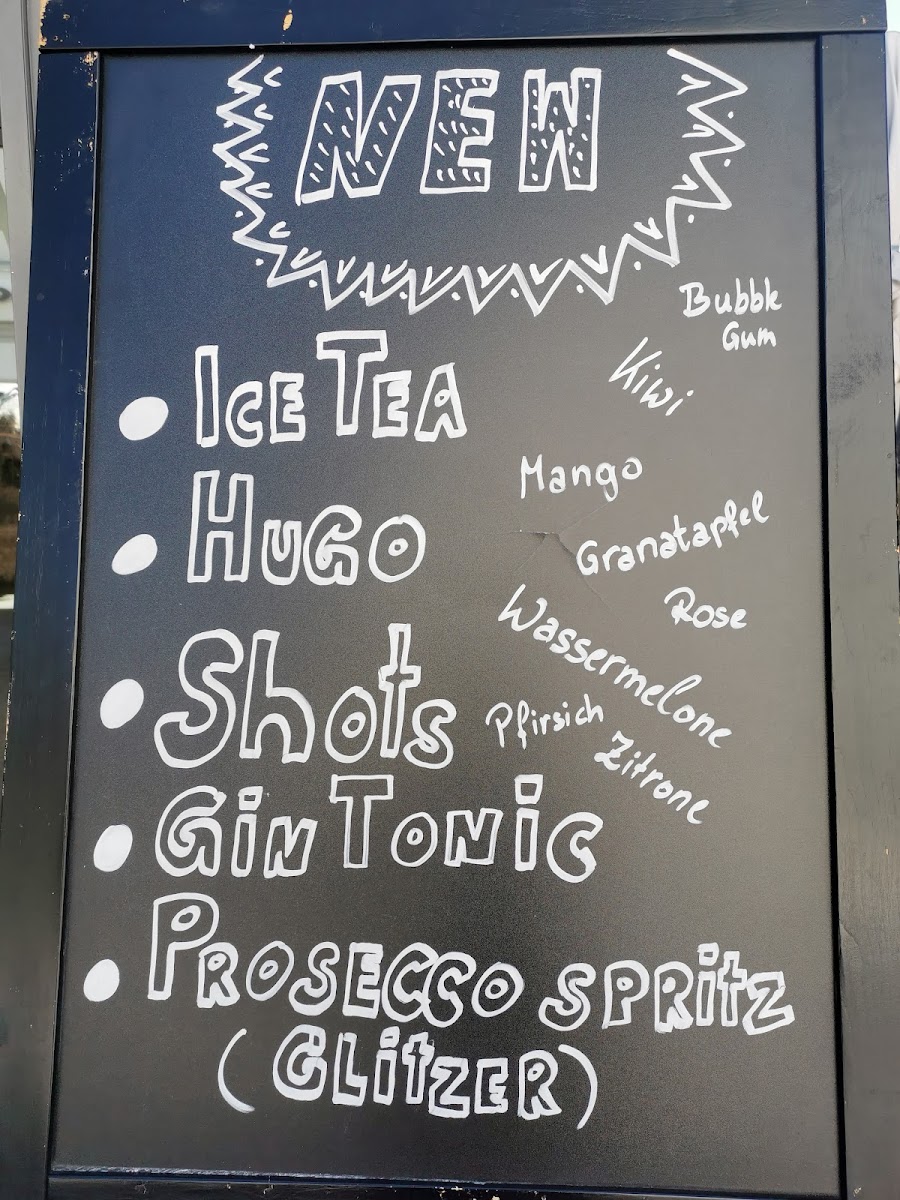 NEW
Bubble
Gum
Kiwi
ICE TEA
Mango
HuGO
Granatapfel
Rose
Wassermelone
Shots
Pfirsich
Zitrone
GiN TONiC
PROSECCO SPRitZ
(GLitZER)